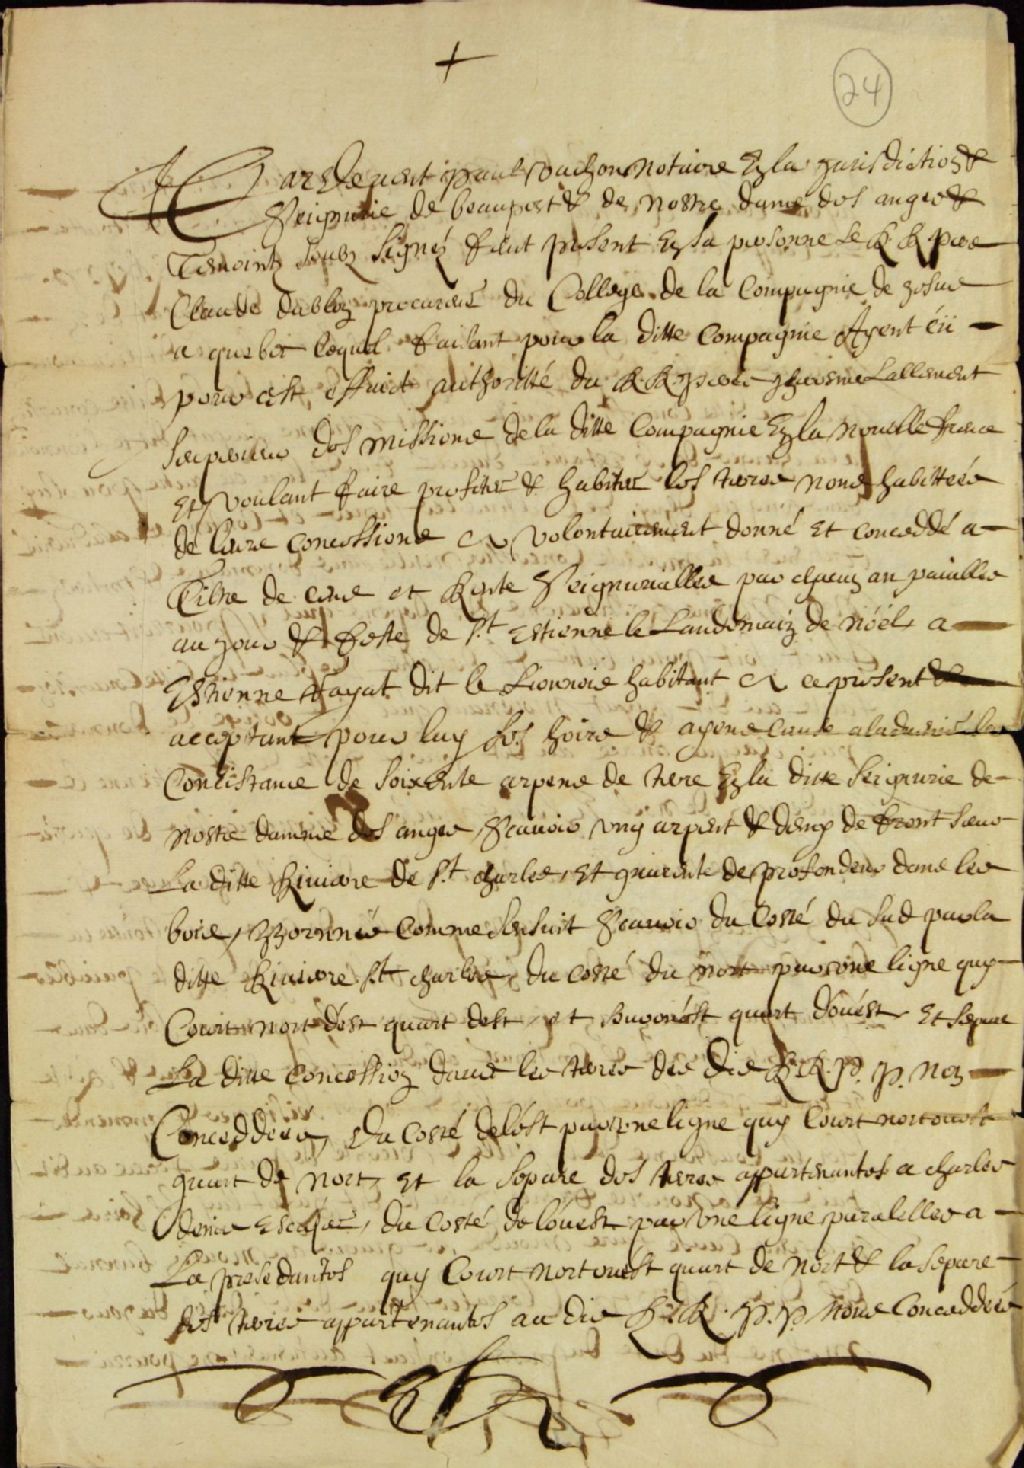 24
Pardevent paul vachon Notaire En la Jurisdiction &
Seigneurie de beauport & de Nostre dame des anges &
Temoins soubz signéz feut present En sa personne Le R R pere
Claude dablon procureur du College de la Compagnie de Jesus
a quebec lequel faisant pour la ditte Compagnie Agent
pour cest effaict authoristé du R. R. pere Lallement
superieur des missions de la ditte Compagnie En la Nouvelle france
Et voulant faire profiter & habiter les terres nons habittées
de leurs concessions a volontairement donné Et conceddé a
Tiltre de cens et Rente Seigneurialles par chacun an paiables
au jour & feste de St Estienne le Landemain de Noël a
Estienne dit le Lionnois habitant a ce present &
acceptant pour luy ses hoirs & ayens cause
Consistance de soixente arpens de terre En la ditte Seigneurie de
Nostre damme des anges scavoir un arpent & demy de front sur
La ditte Riviere de St charles, Et quarente de profondeur dans les
bois, Bornnés comme sensuit Scavoir du Costé du Sud par la
ditte Riviere St charles, du costé du nort par une ligne quy
Court nort dest quart dest, et surouest quart douest, Et sepure
La ditte concession davec les terres des dis R. R. P. P. Non
Conceddées, du Costé delest par une ligne quy Court nortouest
quart de Nort, Et la separe des terres appartenantes a charles
denis Escuier, du Costé de louest par une ligne paralelles a
La presedantes quy Court Nort ouest quart de Nort & la separe
des terres appartenantes au dis R. R. P. P. Nons Conceddées